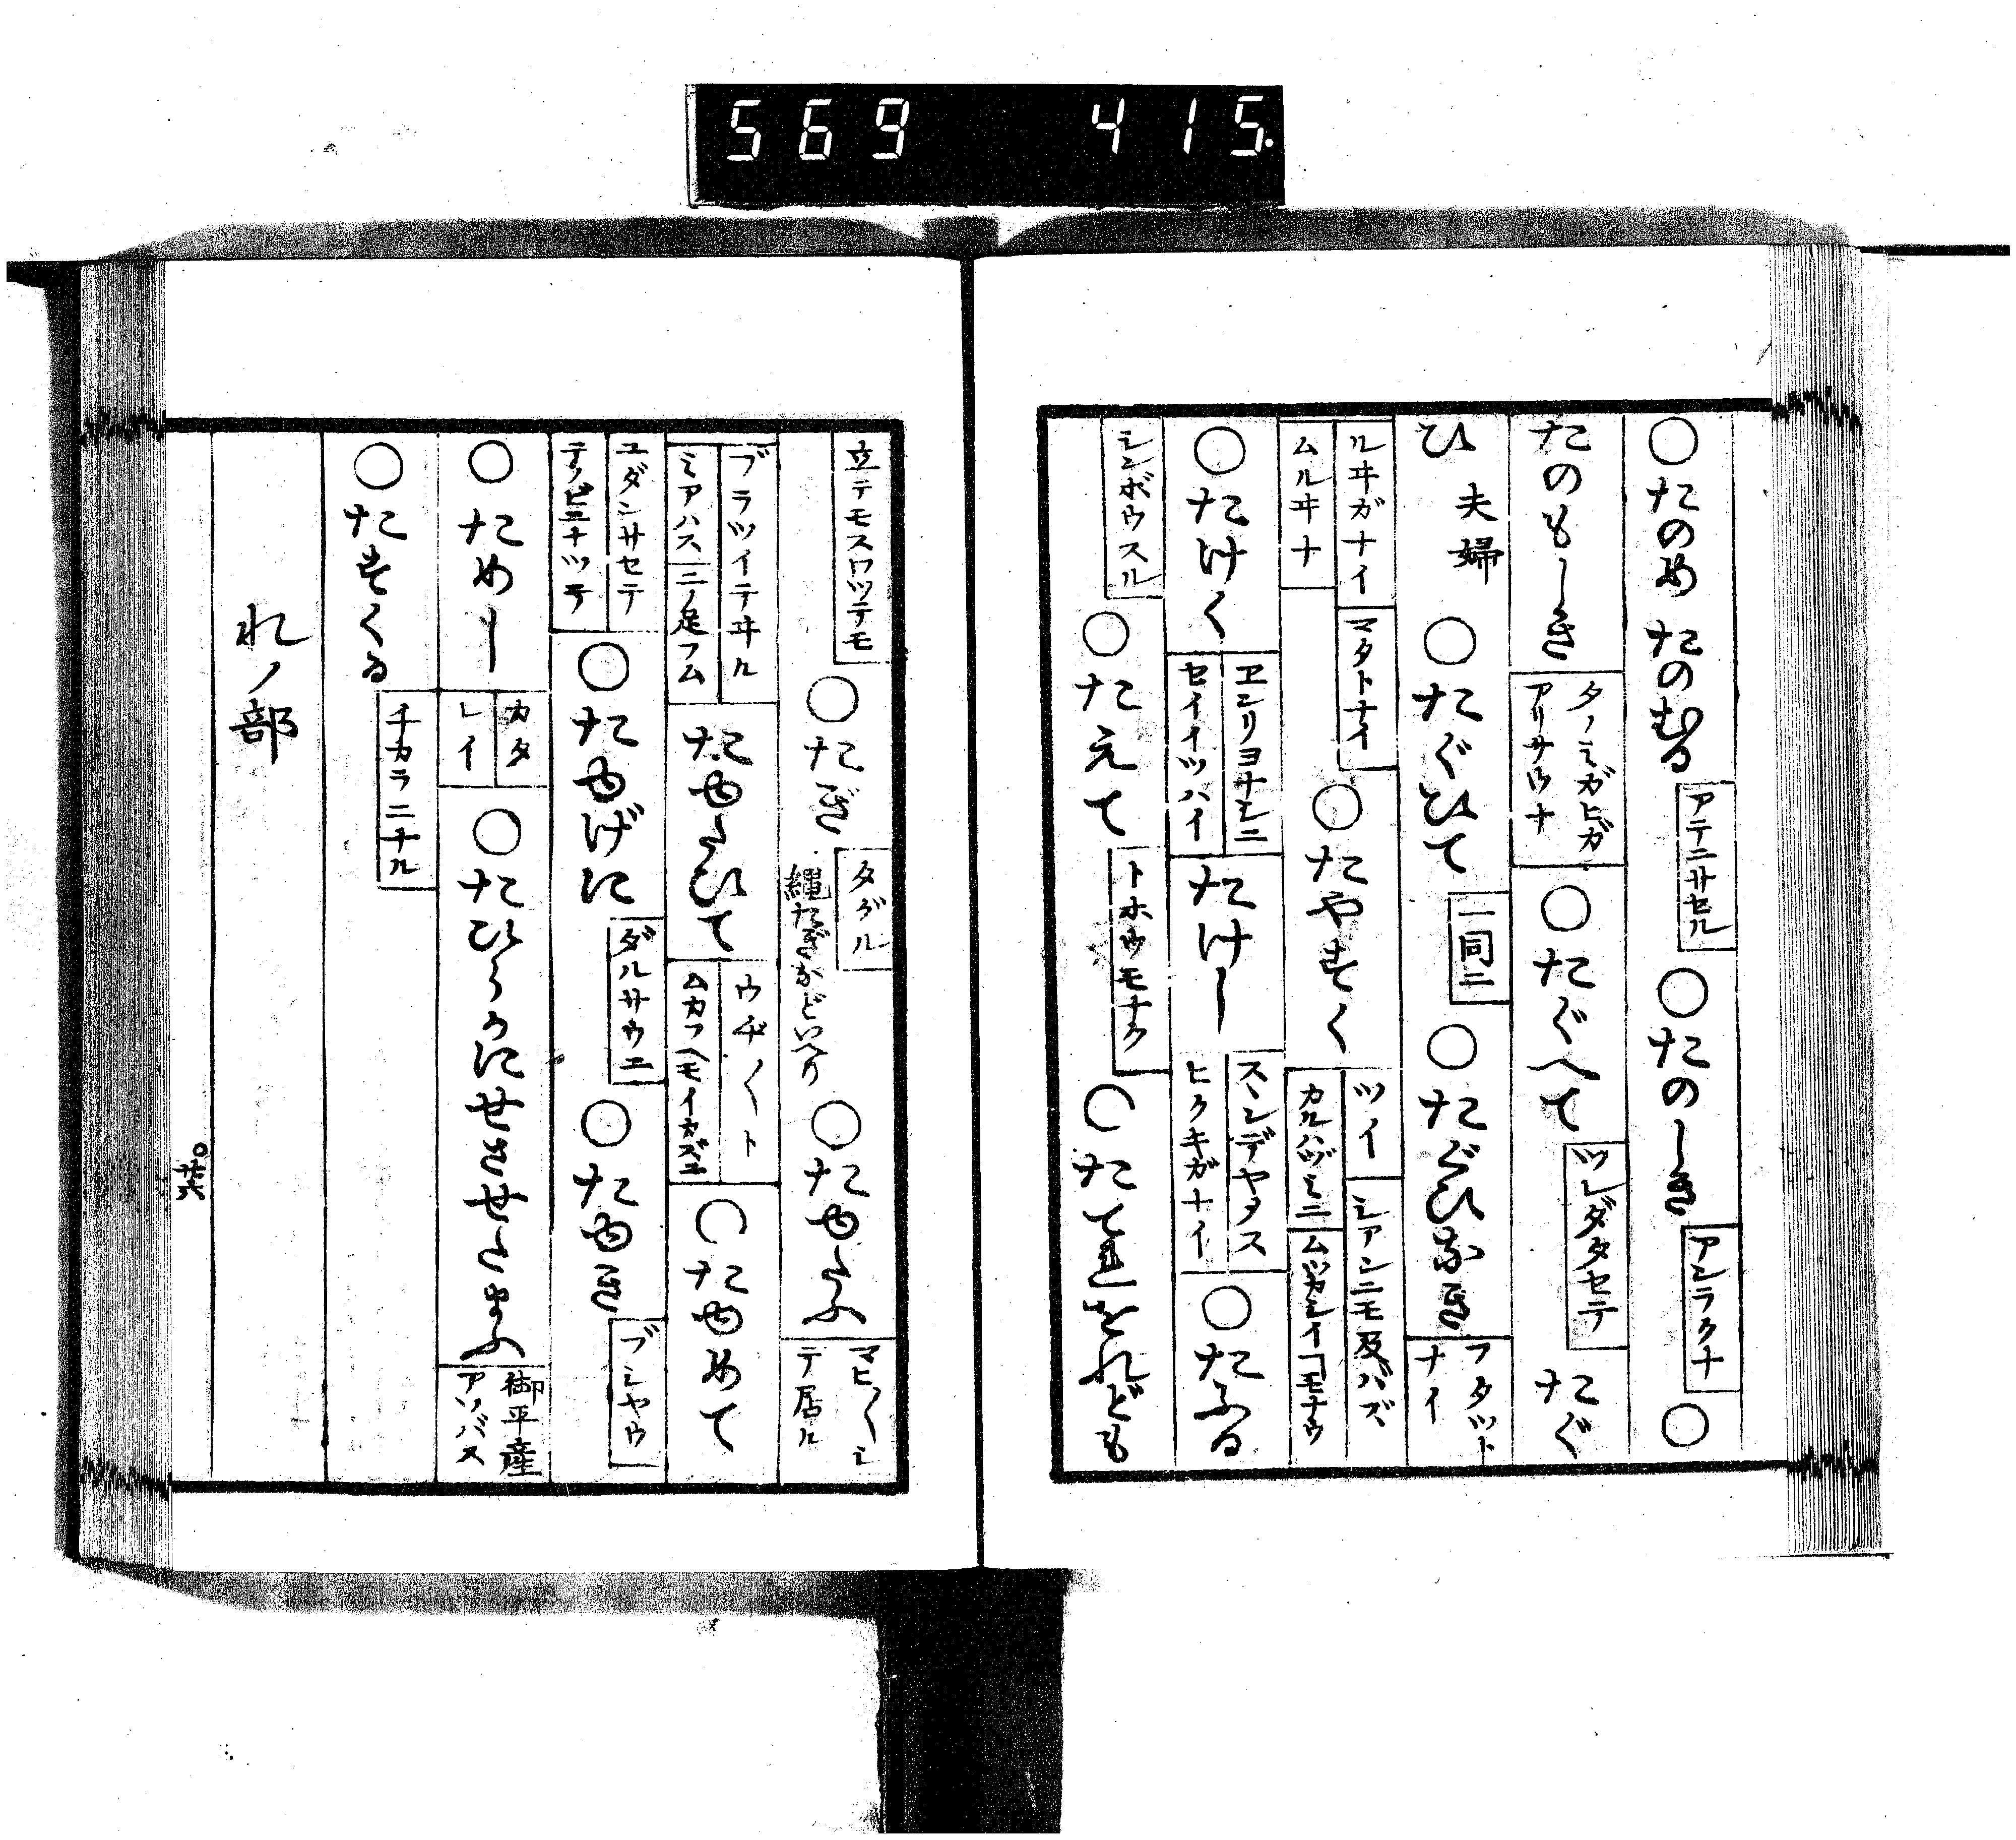 569 415.
○たのめ たのむる アテニサセル ○たのしき アンラクナ ○
たのもしき タノミガヒガアリサウナ ○たぐへて ツレダタセテ たぐ
ひ 夫婦 ○たぐひて 一同ニ ○たぐひなき フタツトナイ
ルヰガナイ ムルヰナ マタトナイ ○たやすく ツイ カルハヅミニ シアンニモ及バズ ムツカシイヿモナウ
○たけく ヱンリヨナシニ セイイツハイ たけし スヽンデヤタス ヒクキガナイ ○たふる
シンボウスル ○たえて トホウモナク ○たてれをれども
立テモスワツテモ ○たぎ タグル 縄たぎなどいへり ○たゆたふ マヒ〳〵シテ居ル
ブラツイテヰル ミアハス 二ノ足フム たゆたひて ウヂ〳〵ト ムカフヘモイカズニ ○たゆめて
ユダンサセテ テノビニナツテ ○たゆげに ダルサウニ ○たゆき ブシヤウ
○ためし カタ レイ ○たひらかにせさせたまふ 御平産アソバス
○たすくる チカラニナル
れノ部